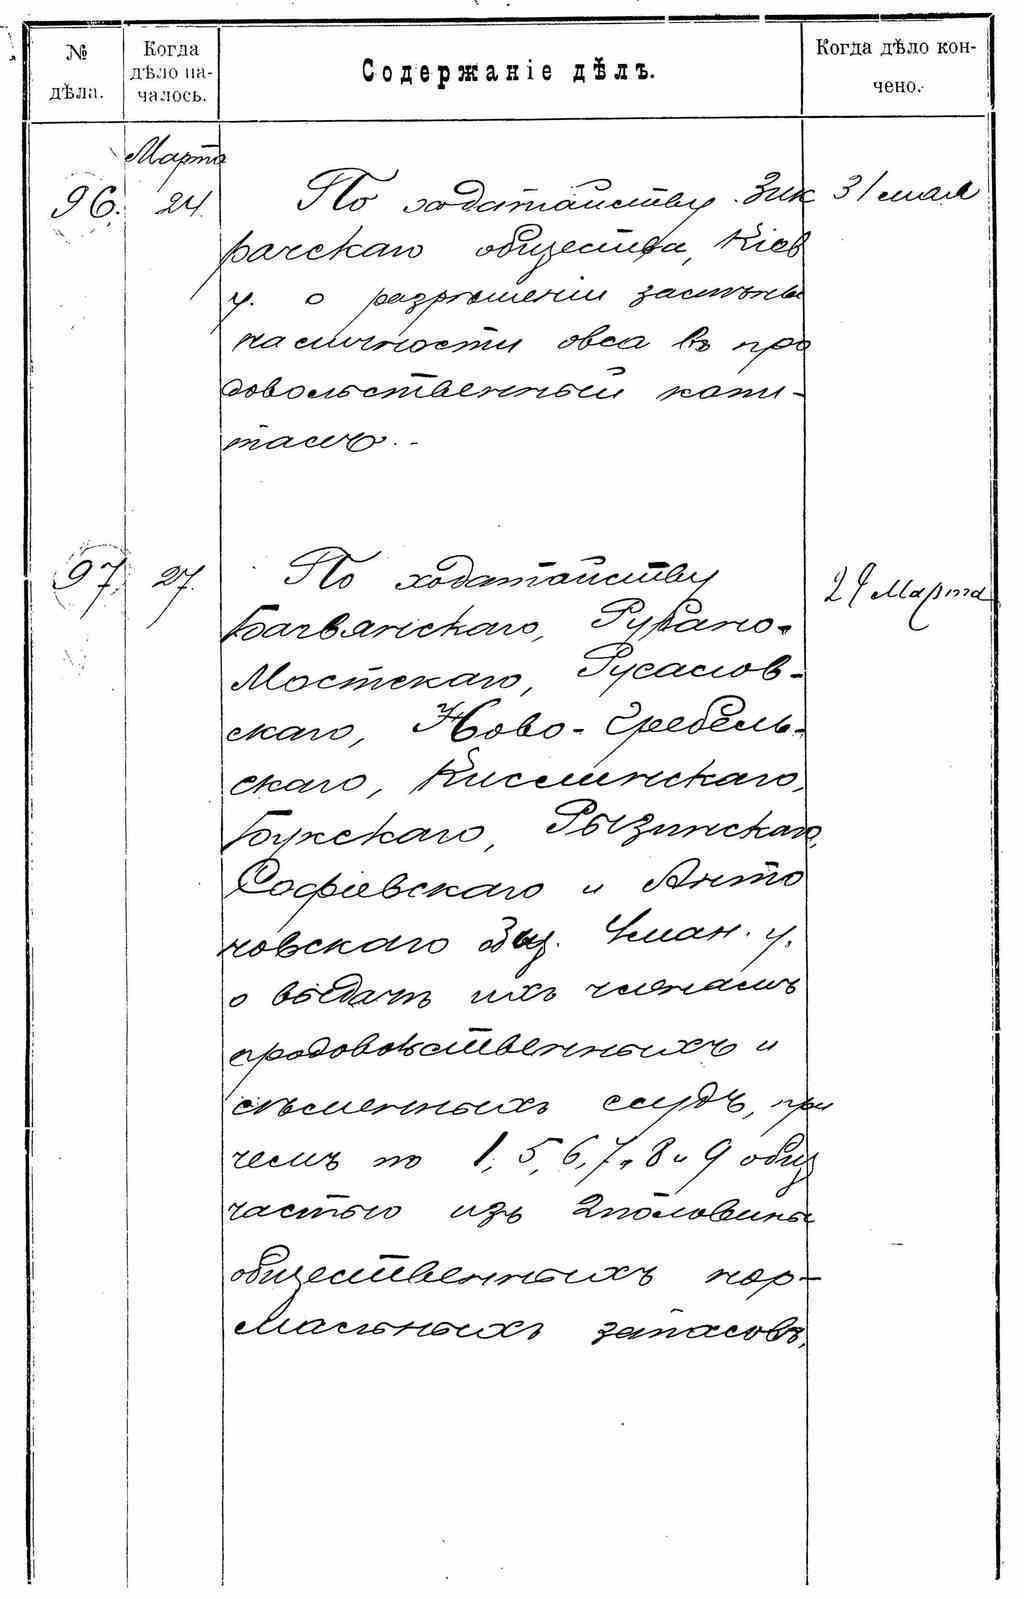 № дѣла.
Когда дѣло на-
чалось.
Содержаніе дѣлъ.
Когда дѣло кон-
чено.
Марта
96. 24. По ходатайству Зик 31 мая
рачскаго общества, Кіев
у. о разрѣшеніи замѣны
наличности овса въ про
довольственный капи-
талъ.
97. 27. По ходатайству 29 Марта
Багвянскаго, Рубано-
Мостскаго, Русалов-
скаго, Ново-Гребель-
скаго, Кислинскаго,
Букскаго, Рызинскаго,
Софіевскаго и Анто
новскаго общ. Уман. у.
о выдачѣ ихъ членамъ
продовольственныхъ и
сѣменныхъ ссудъ, при
чемъ по 1, 5, 6, 7, 8 и 9 общ
частью изъ 2 половины
общественныхъ нор-
мальныхъ запасовъ.